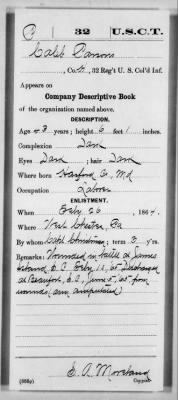 C 32 U.S.C.T.
Caleb Parsons
, Co. , 32 Reg't U. S. Col'd Inf.
Appears on
Company Descriptive Book
of the organization named above.
DESCRIPTION.
Age 43 years; height 6 feet 1 inches.
Complexion Dark
Eyes Dark ; hair Dark
Where born Harford Co, Md
Occupation Labor
ENLISTMENT.
When Feby 26 , 1864.
Where West Chester, Pa
By whom Capt ; term 3 y'rs.
Remarks: Wounded in battle at James
Island S.C. Feby 10, 65 Discharged
at Beaufort, S.C., June 5, 65 from
wounds (arm amputated)
E. A. Moreland
(383g) Copyist.